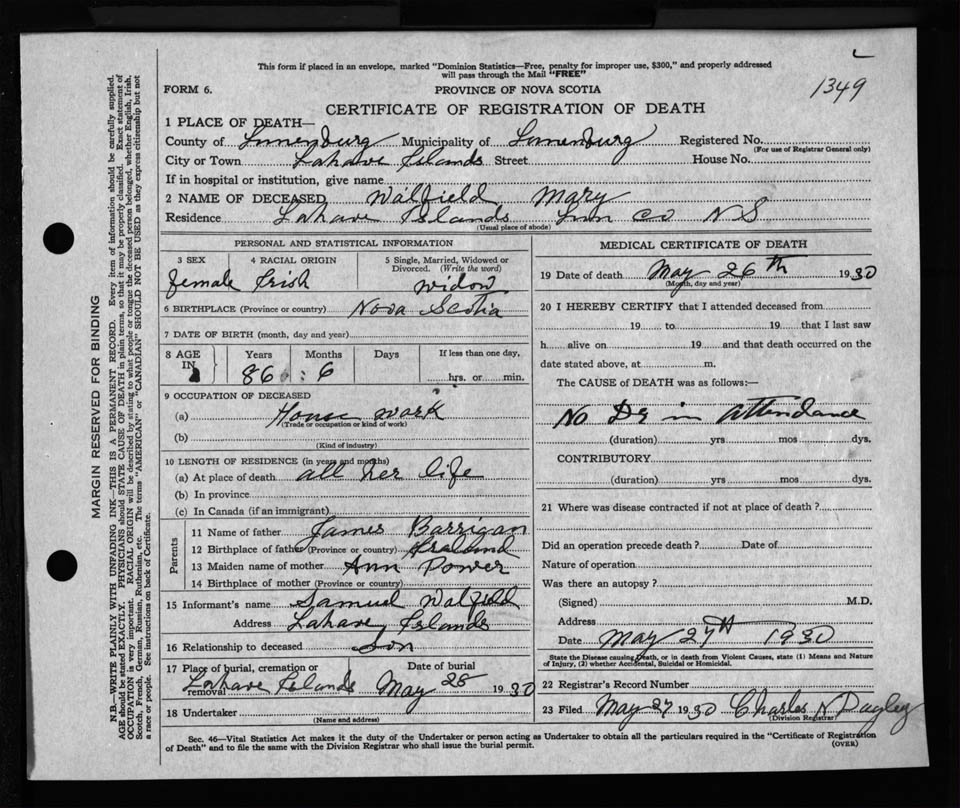 This form if placed in an envelope, marked "Dominion Statistics—Free, penalty for improper use, $300," and properly addressed
will pass through the Mail "FREE"
1349
FORM 6.
PROVINCE OF NOVA SCOTIA
CERTIFICATE OF REGISTRATION OF DEATH
1 PLACE OF DEATH—
County of Lunenburg Municipality of Lunenburg Registered No.
(For use of Registrar General only)
City or Town Lahave Islands Street House No.
If in hospital or institution, give name
2 NAME OF DECEASED Walfield Mary
Residence Lahave Islands Lun Co N S
(Usual place of abode)
PERSONAL AND STATISTICAL INFORMATION
3 SEX 4 RACIAL ORIGIN 5 Single, Married, Widowed or Divorced. (Write the word)
female Irish widow
6 BIRTHPLACE (Province or country) Nova Scotia
7 DATE OF BIRTH (month, day and year)
8 AGE IN Years Months Days If less than one day,
86 6 hrs. or min.
9 OCCUPATION OF DECEASED
(a) House work
(Trade or occupation or kind of work)
(b)
(Kind of industry)
10 LENGTH OF RESIDENCE (in years and months)
(a) At place of death all her life
(b) In province
(c) In Canada (if an immigrant)
Parents
11 Name of father James Barrigan
12 Birthplace of father (Province or country) Ireland
13 Maiden name of mother Ann Power
14 Birthplace of mother (Province or country)
15 Informant's name Samuel Walfield
Address Lahave Islands
16 Relationship to deceased son
17 Place of burial, cremation or removal Date of burial
Lahave Islands May 28 1930
18 Undertaker
(Name and address)
MEDICAL CERTIFICATE OF DEATH
19 Date of death May 26th 1930
(Month, day and year)
20 I HEREBY CERTIFY that I attended deceased from
19 to 19 that I last saw
h alive on 19 and that death occurred on the
date stated above, at m.
The CAUSE of DEATH was as follows:—
No Dr in attendance
(duration) yrs mos dys.
CONTRIBUTORY
(duration) yrs mos dys.
21 Where was disease contracted if not at place of death?
Did an operation precede death? Date of
Nature of operation
Was there an autopsy?
(Signed) M.D.
Address
Date May 27th 1930
State the Disease causing Death, or in death from Violent Causes, state (1) Means and Nature
of Injury, (2) whether Accidental, Suicidal or Homicidal.
22 Registrar's Record Number
23 Filed May 27 1930 Charles N Dagley
(Division Registrar)
Sec. 46—Vital Statistics Act makes it the duty of the Undertaker or person acting as Undertaker to obtain all the particulars required in the "Certificate of Registration
of Death" and to file the same with the Division Registrar who shall issue the burial permit.
(OVER)
MARGIN RESERVED FOR BINDING
N.B.—WRITE PLAINLY WITH UNFADING INK—THIS IS A PERMANENT RECORD. Every item of information should be carefully supplied.
AGE should be stated EXACTLY. PHYSICIANS should STATE CAUSE OF DEATH in plain terms, so that it may be properly classified. Exact statement of
OCCUPATION is very important. RACIAL ORIGIN will be described by stating to what people or tongue the deceased person belonged, whether English, Irish,
Scotch, French, German, Russian, Ruthenian, etc. The terms "AMERICAN" or "CANADIAN" SHOULD NOT BE USED as they express citizenship but not
a race or people. See instructions on back of Certificate.